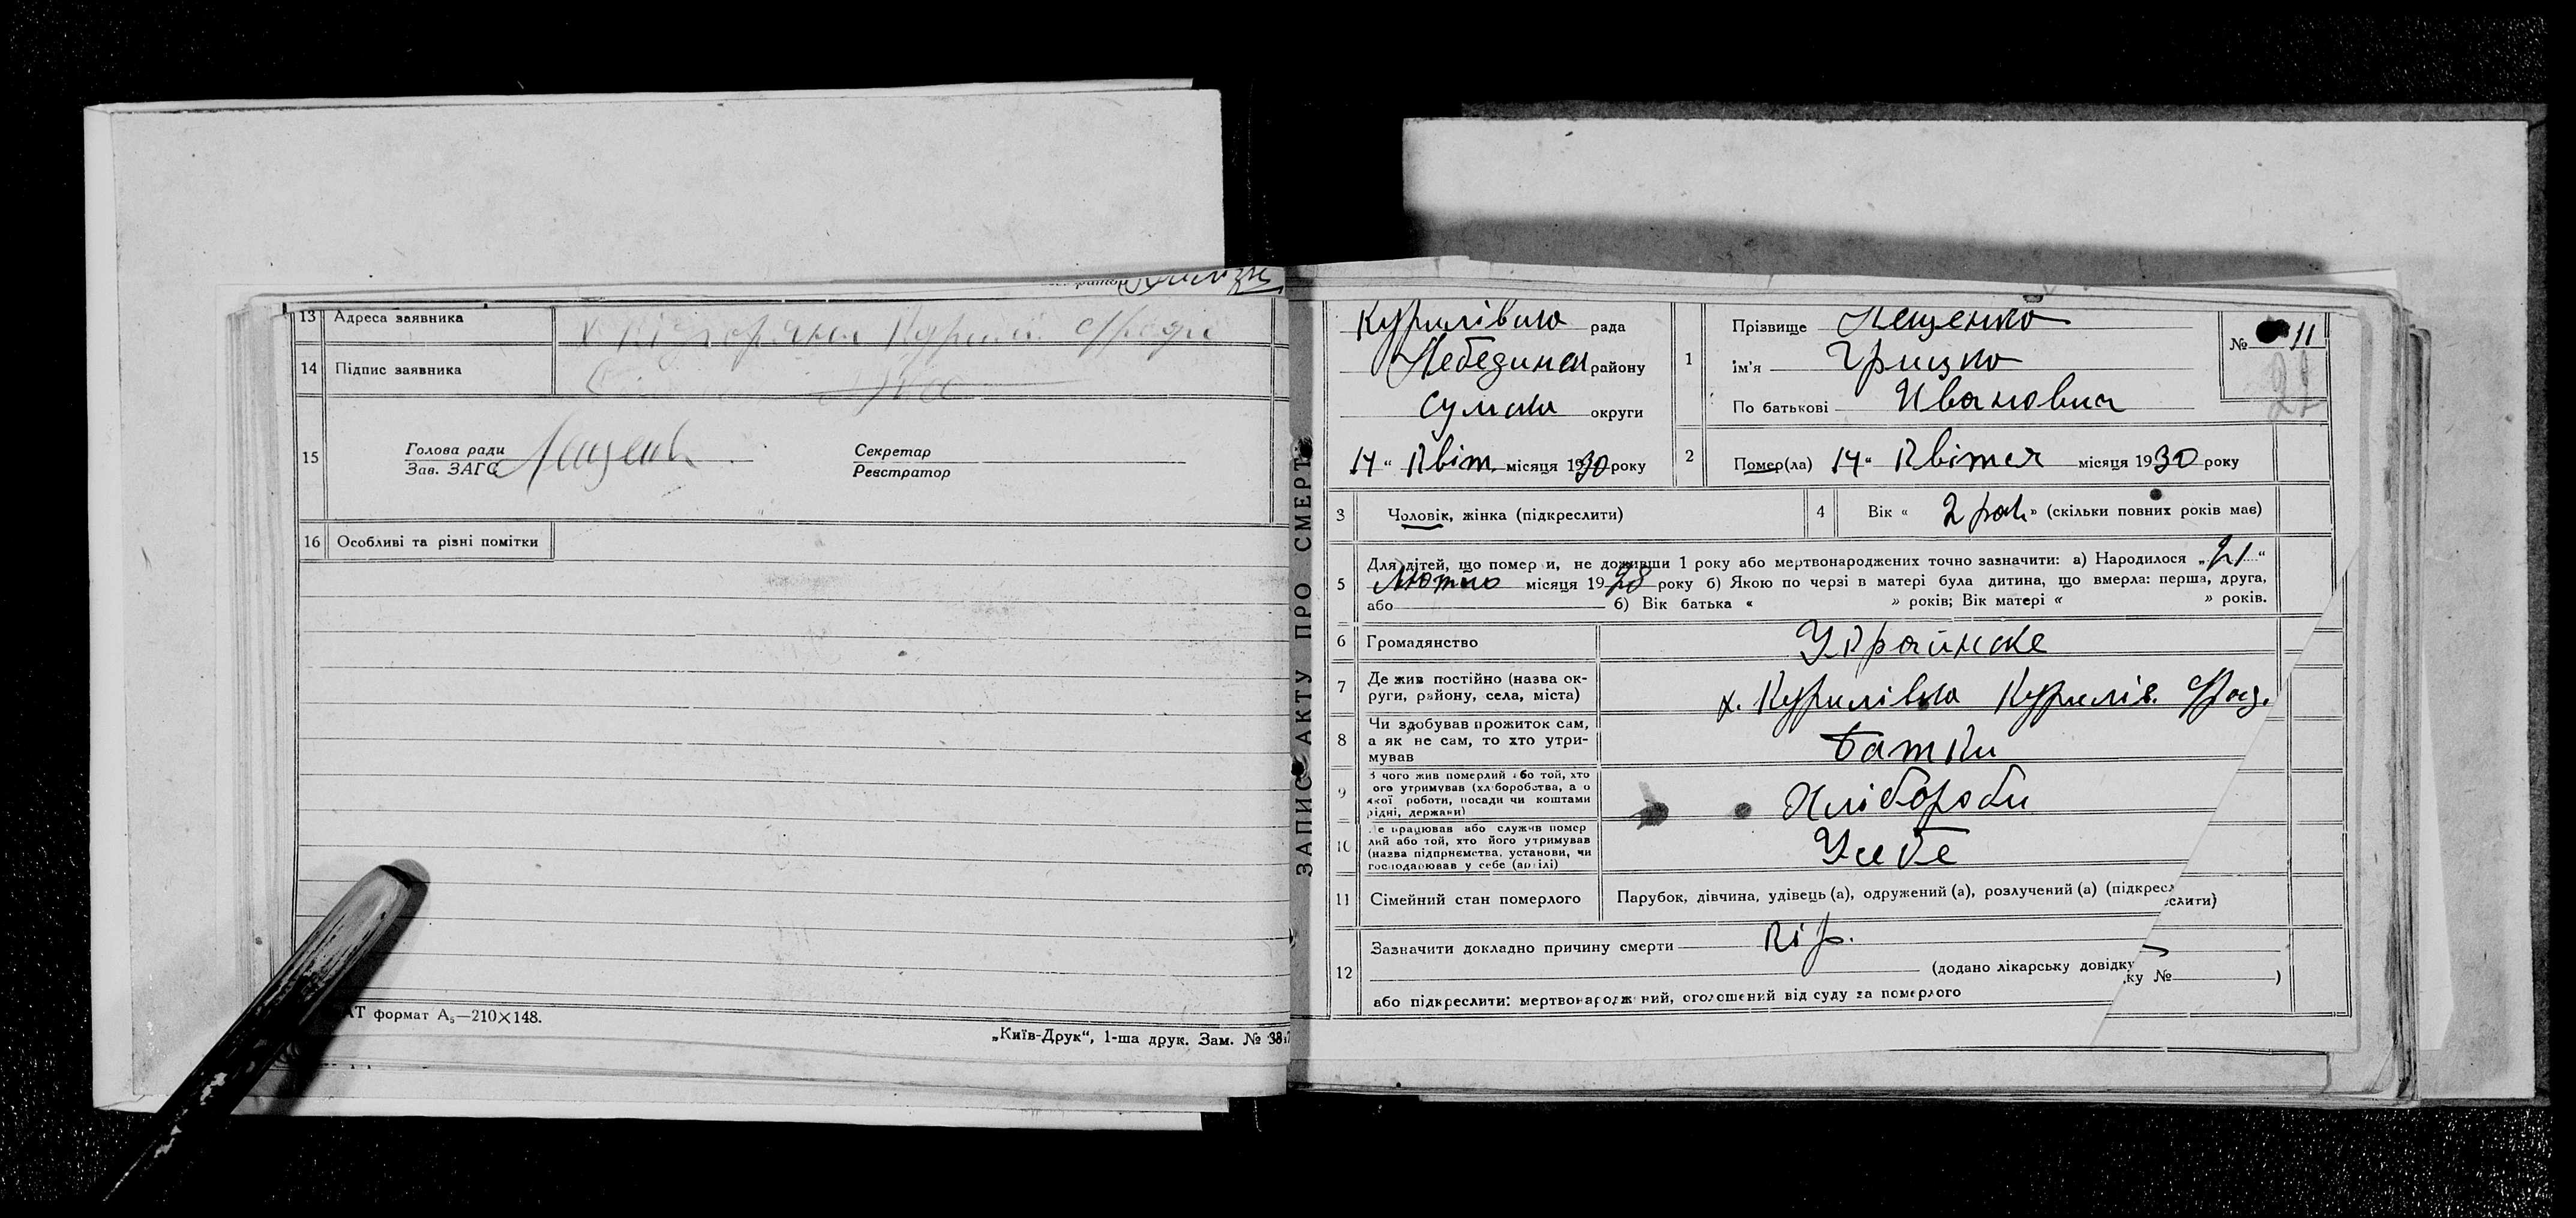 13 Адреса заявника
14 Підпис заявника
15 Голова ради
Зав. ЗАГС
Секретар
Реєстратор
16 Особливі та різні помітки
формат А₅—210×148.
„Київ-Друк“, 1-ша друк. Зам. №
ЗАПИС АКТУ ПРО СМЕРТЬ
рада
Лебединск району
Сумска округи
14 “ Квіт. місяця 1930 року
1 Прізвище Лещенко
ім'я Грицко
По батькові Иванович
№ 11
2 Помер(ла) 14 “ Квітня місяця 1930 року
3 Чоловік, жінка (підкреслити)
4 Вік « 2 рок » (скільки повних років має)
5 Для дітей, що помер и, не доживши 1 року або мертвонароджених точно зазначити: а) Народилося „ 21 “
Лютого місяця 1928 року б) Якою по черзі в матері була дитина, що вмерла: перша, друга,
або б) Вік батька « » років; Вік матері « » років.
6 Громадянство Українске
7 Де жив постійно (назва ок-
руги, району, села, міста) х. Курилівка Курилів. с/рад.
8 Чи здобував прожиток сам,
а як не сам, то хто утри-
мував Батки
9 З чого жив померлий або той, хто
ого утримував (хл боробства, а о
якої роботи, посади чи коштами
рідні, держави) Хлібороби
10 Де працював або служив помер
лий або той, хто його утримував
(назва підприємства, установи, чи
господарював у себе (артілі) У себе
11 Сімейний стан померлого Парубок, дівчина, удівець (а), одружений (а), розлучений (а) (підкресл
еслити)
12 Зазначити докладно причину смерти Кір.
(додано лікарську довідку
ку № )
або підкреслити: мертвонародж ний, оголошений від суду за померлого